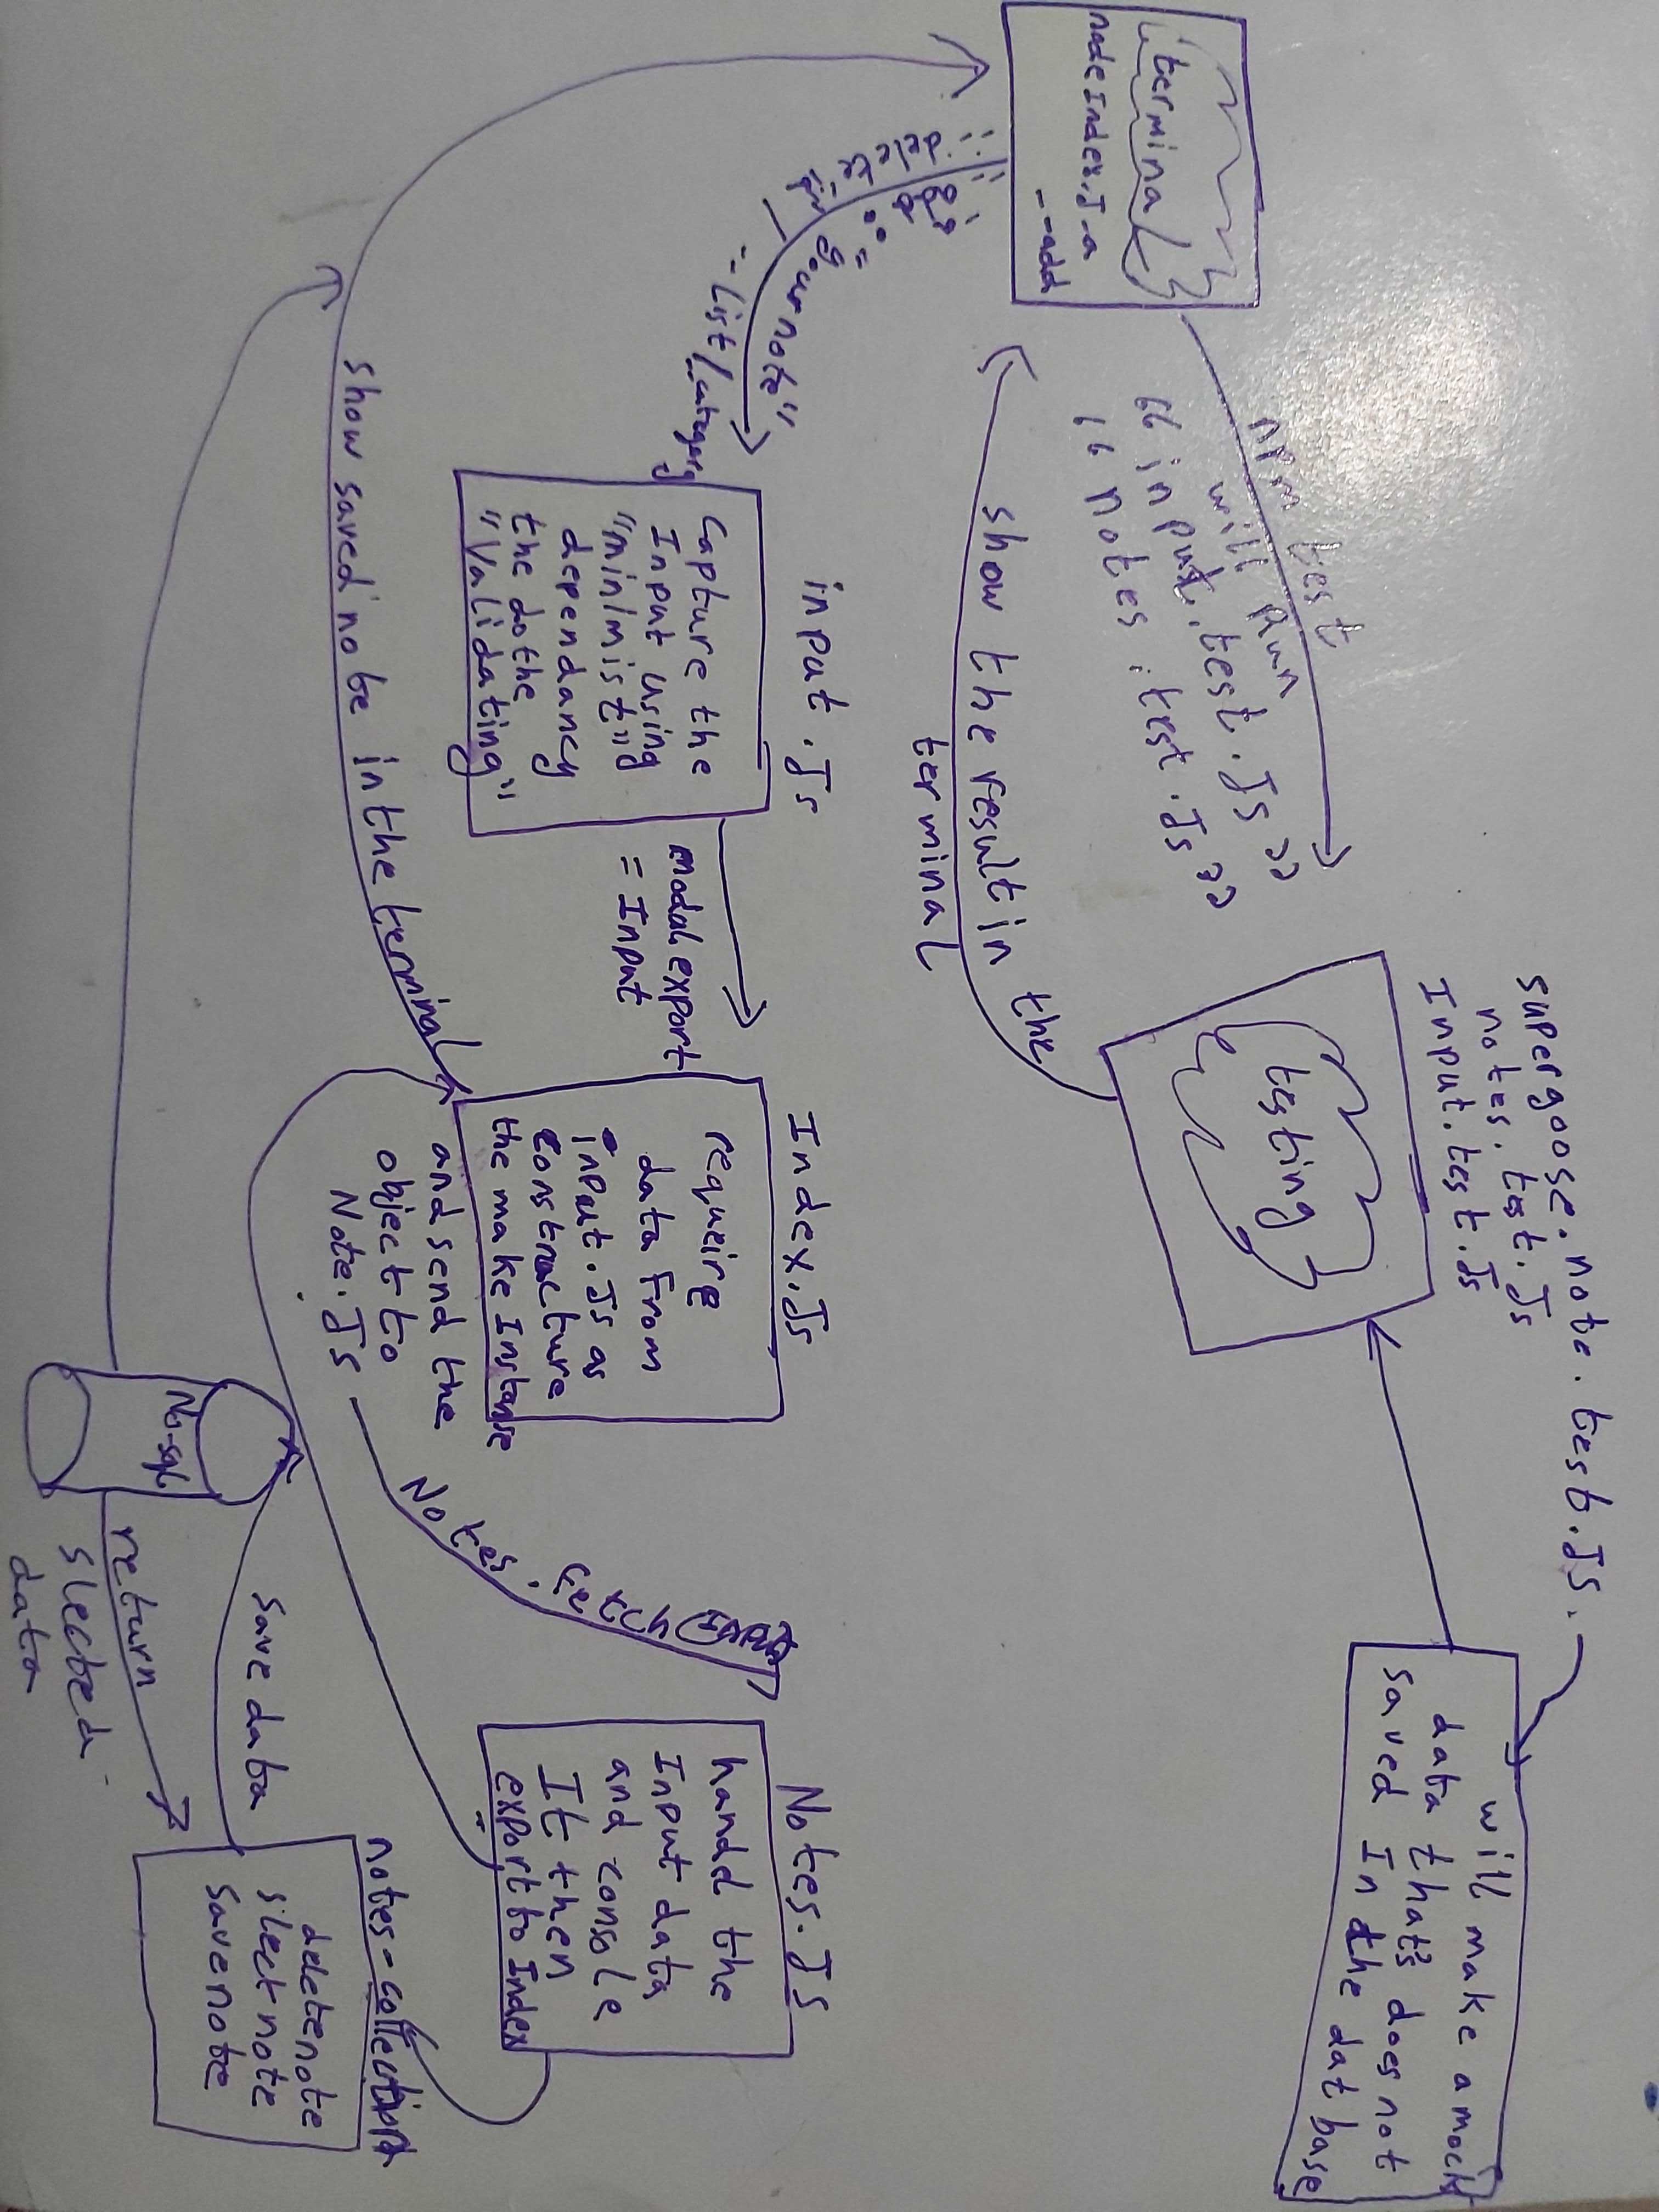 supergoose.note.test.JS.
notes.test.Js
Input.test.Js
will make a mock
data that's does not
saved In the dat base
testing
npm test
will Run
"input.test.Js"
"notes.test.Js"
terminal
node Index.J -a
--add
show the result in the
terminal
--add: "your note"
--delete id
--List/category
input.Js
Capture the
Input using
"minimist"
dependancy
the do the
"Validating"
modal export
= Input
Index.Js
requeire
data From
input.Js as
constracture
the make Instanse
and send the
object to
Note.JS
Notes.Fetch(Input)
Notes.JS
handel the
Input data
and console
It then
export to Index
show saved note in the terminal
notes-collection
deletenote
slect note
savenote
save data
No-sql
return
slected
data